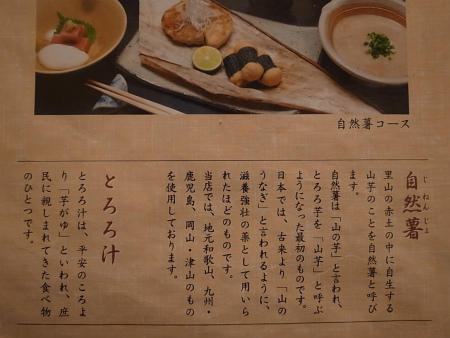 自然薯コース
自然薯
じねんじょ
里山の赤土の中に自生する
山芋のことを自然薯と呼び
ます。
自然薯は、「山の芋」と言われ、
とろろ芋を「山芋」と呼ぶ
ようになった最初のものです。
日本では、古来より「山の
うなぎ」と言われるように、
滋養強壮の薬として用いら
れたほどのものです。
当店では、地元和歌山、九州・
鹿児島、岡山・津山のもの
を使用しております。
とろろ汁
とろろ汁は、平安のころよ
り「芋がゆ」といわれ、庶
民に親しまれてきた食べ物
のひとつです。